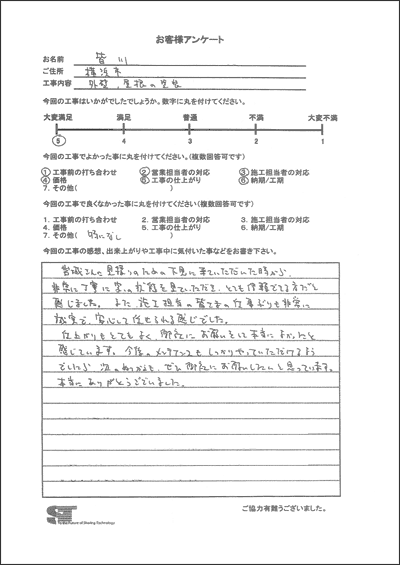 お客様アンケート
お名前 皆川
ご住所 横浜市
工事内容 外壁、屋根の塗装
今回の工事はいかがでしたでしょうか。数字に丸を付けてください。
大変満足 満足 普通 不満 大変不満
5 4 3 2 1
今回の工事でよかった事に丸を付けてください。(複数回答可です)
1. 工事前の打ち合わせ 2. 営業担当者の対応 3. 施工担当者の対応
4. 価格 5. 工事の仕上がり 6. 納期/工期
7. その他( )
今回の工事で良くなかった事に丸を付けてください。(複数回答可です)
1. 工事前の打ち合わせ 2. 営業担当者の対応 3. 施工担当者の対応
4. 価格 5. 工事の仕上がり 6. 納期/工期
7. その他( 特になし )
今回の工事の感想、出来上がりや工事中に気付いた事などをお書き下さい。
宮城さんに見積りのための下見に来ていただいた時から、
非常に丁寧に家の状態を見ていただき、とても信頼できる方だと
感じました。また、施工担当の皆さまの仕事ぶりも非常に
誠実で、安心して任せられる感じでした。
仕上がりもとてもよく、御社にお願いをして本当によかったと
感じています。今後のメンテナンスもしっかりやっていただけるよう
でしたら 次の ぜひ御社にお願いしたいと思っています。
本当にありがとうございました。
ST
To the Future of Sharing Technology
ご協力有難うございました。